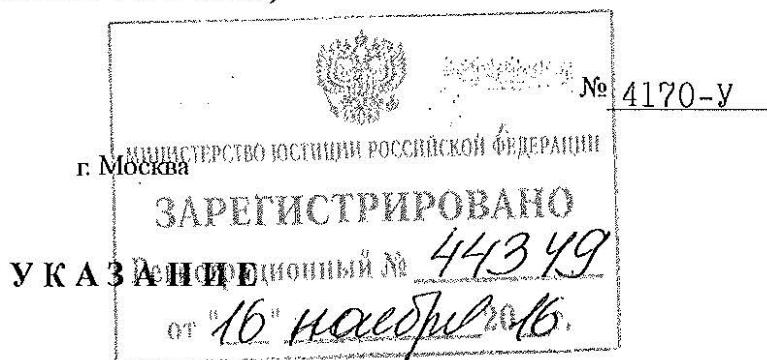 № 4170-У
МИНИСТЕРСТВО ЮСТИЦИИ РОССИЙСКОЙ ФЕДЕРАЦИИ
г. Москва
ЗАРЕГИСТРИРОВАНО
Регистрационный № 44349
УКАЗАНИЕ
от "16" ноября 2016.